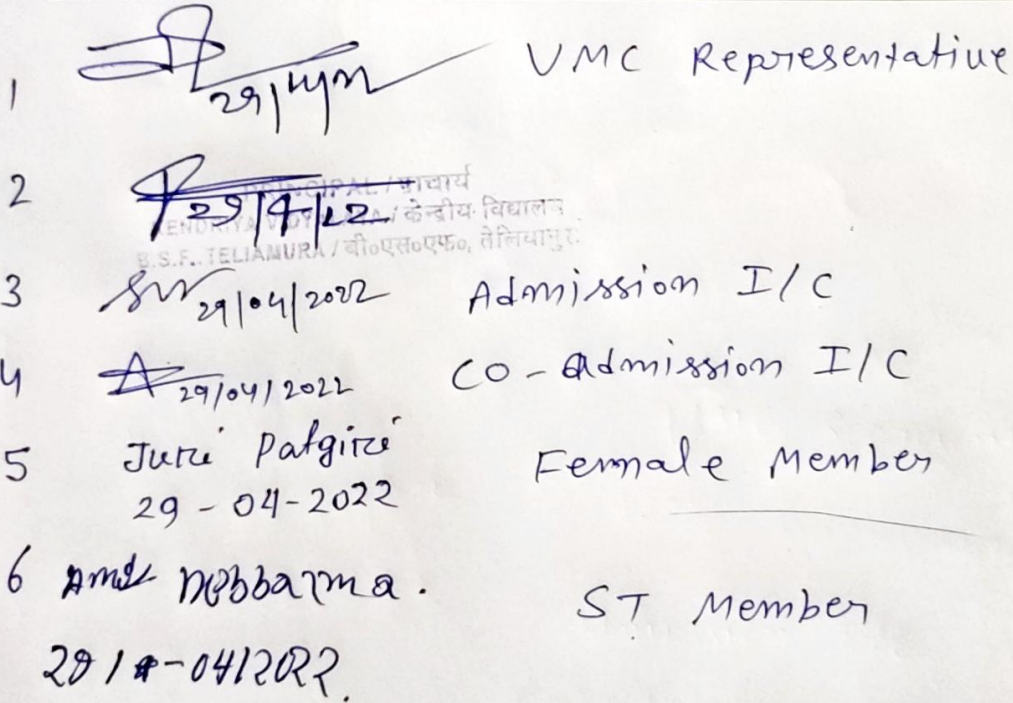 1 29/4/22 VMC Representative
2 29/4/22
PRINCIPAL / प्राचार्य
KENDRIYA VIDYALAYA / केन्द्रीय विद्यालय
B.S.F. TELIAMURA / बी०एस०एफ०, तेलियामुरा
3 29/04/2022 Admission I/C
4 29/04/2022 CO-Admission I/C
5 Juri Patgiri Female Member
29-04-2022
6 Debbarma. ST Member
29/ -04/2022.